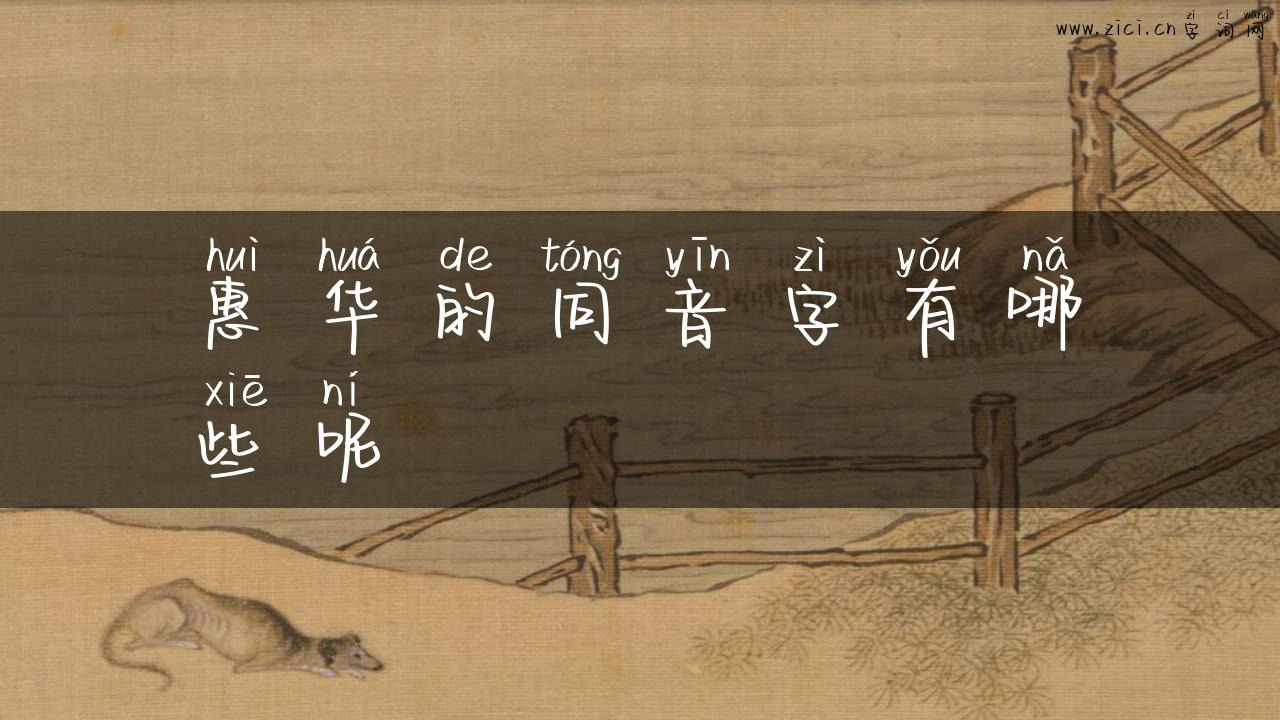 zì cí wǎng
www.zici.cn字词网
huì huá de tóng yīn zì yǒu nǎ
惠华的同音字有哪
xiē ní
些呢